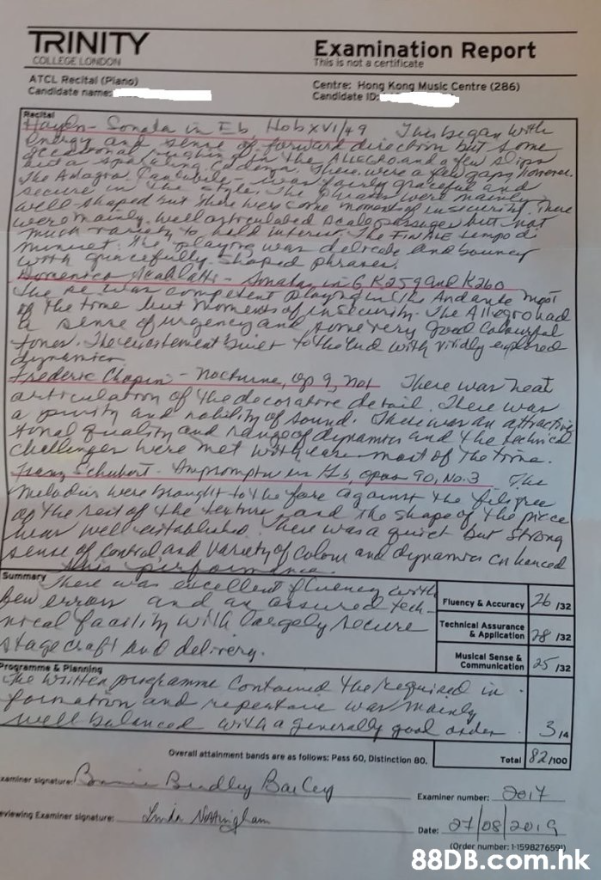 TRINITY
COLLEGE LONDON
Examination Report
This is not a certificate
ATCL Recital (Piano)
Candidate name:
Centre: Hong Kong Music Centre (286)
Candidate ID:
Recital
Haydn - Sonata in Eb, Hob XVI/49 This began with
energy and sense of forward direction but some
in the Allegro and a few slips
There were a few gaps
The Adagio Cantabile was fairly graceful and
secure in the style. The phrases were mainly
well shaped but there were some moments of insecurity. There
were mainly well articulated scale passages but not
much variety to hold interest. The Finale tempo di
minuet: the playing was delicate and bouncy
with gracefully shaped phrases.
Domenico Scarlatti - Sonatas in G K259 and K260
competent playing in the Andante most
of the time but moments of insecurity. The Allegro had
a sense of urgency and some very good colourful
tones. The excitement built to the end with vividly explored
dynamics
Frederic Chopin - Nocturne, Op 9, No1 There was neat
articulation of the decorative detail. There was
a purity and nobility of sound. There was an attractive
tonal quality and range of dynamics and the technical
challenges were met with care most of the time.
Franz Schubert - Impromptu in Gb, opus 90, No.3 The
melodies were brought to the fore against the filigree
of the rest of the texture, and the shape of the piece
was well established. There was a quiet but strong
sense of control and variety of colour and dynamics enhanced
this performance.
Summary
There was excellent fluency with
few errors and an assured tech-
nical facility with largely secure
stagecraft and delivery.
Fluency & Accuracy 26 /32
Technical Assurance & Application 28 /32
Musical Sense & Communication 25 /32
Programme & Planning
The written programme contained the required in-
formation and repertoire was mainly
well balanced with a generally good order.
3 /4
Overall attainment bands are as follows: Pass 60, Distinction 80.
Total 82 /100
Examiner signature:
Examiner number:
Reviewing Examiner signature: Linda Nottingham
Date: 27/08/2019
(Order number: 1-1598276591)
88DB.com.hk